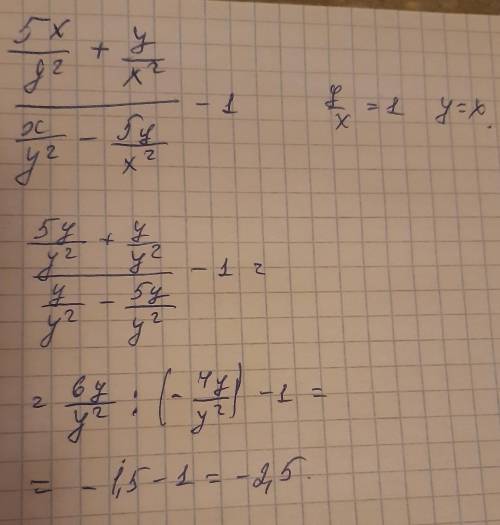 \frac{\frac{5x}{y^2} + \frac{y}{x^2}}{\frac{x}{y^2} - \frac{5y}{x^2}} - 1    \frac{y}{x} = 1    y = x.
\frac{\frac{5y}{y^2} + \frac{y}{y^2}}{\frac{y}{y^2} - \frac{5y}{y^2}} - 1 =
= \frac{6y}{y^2} : \left(-\frac{4y}{y^2}\right) - 1 =
= -1,5 - 1 = -2,5.